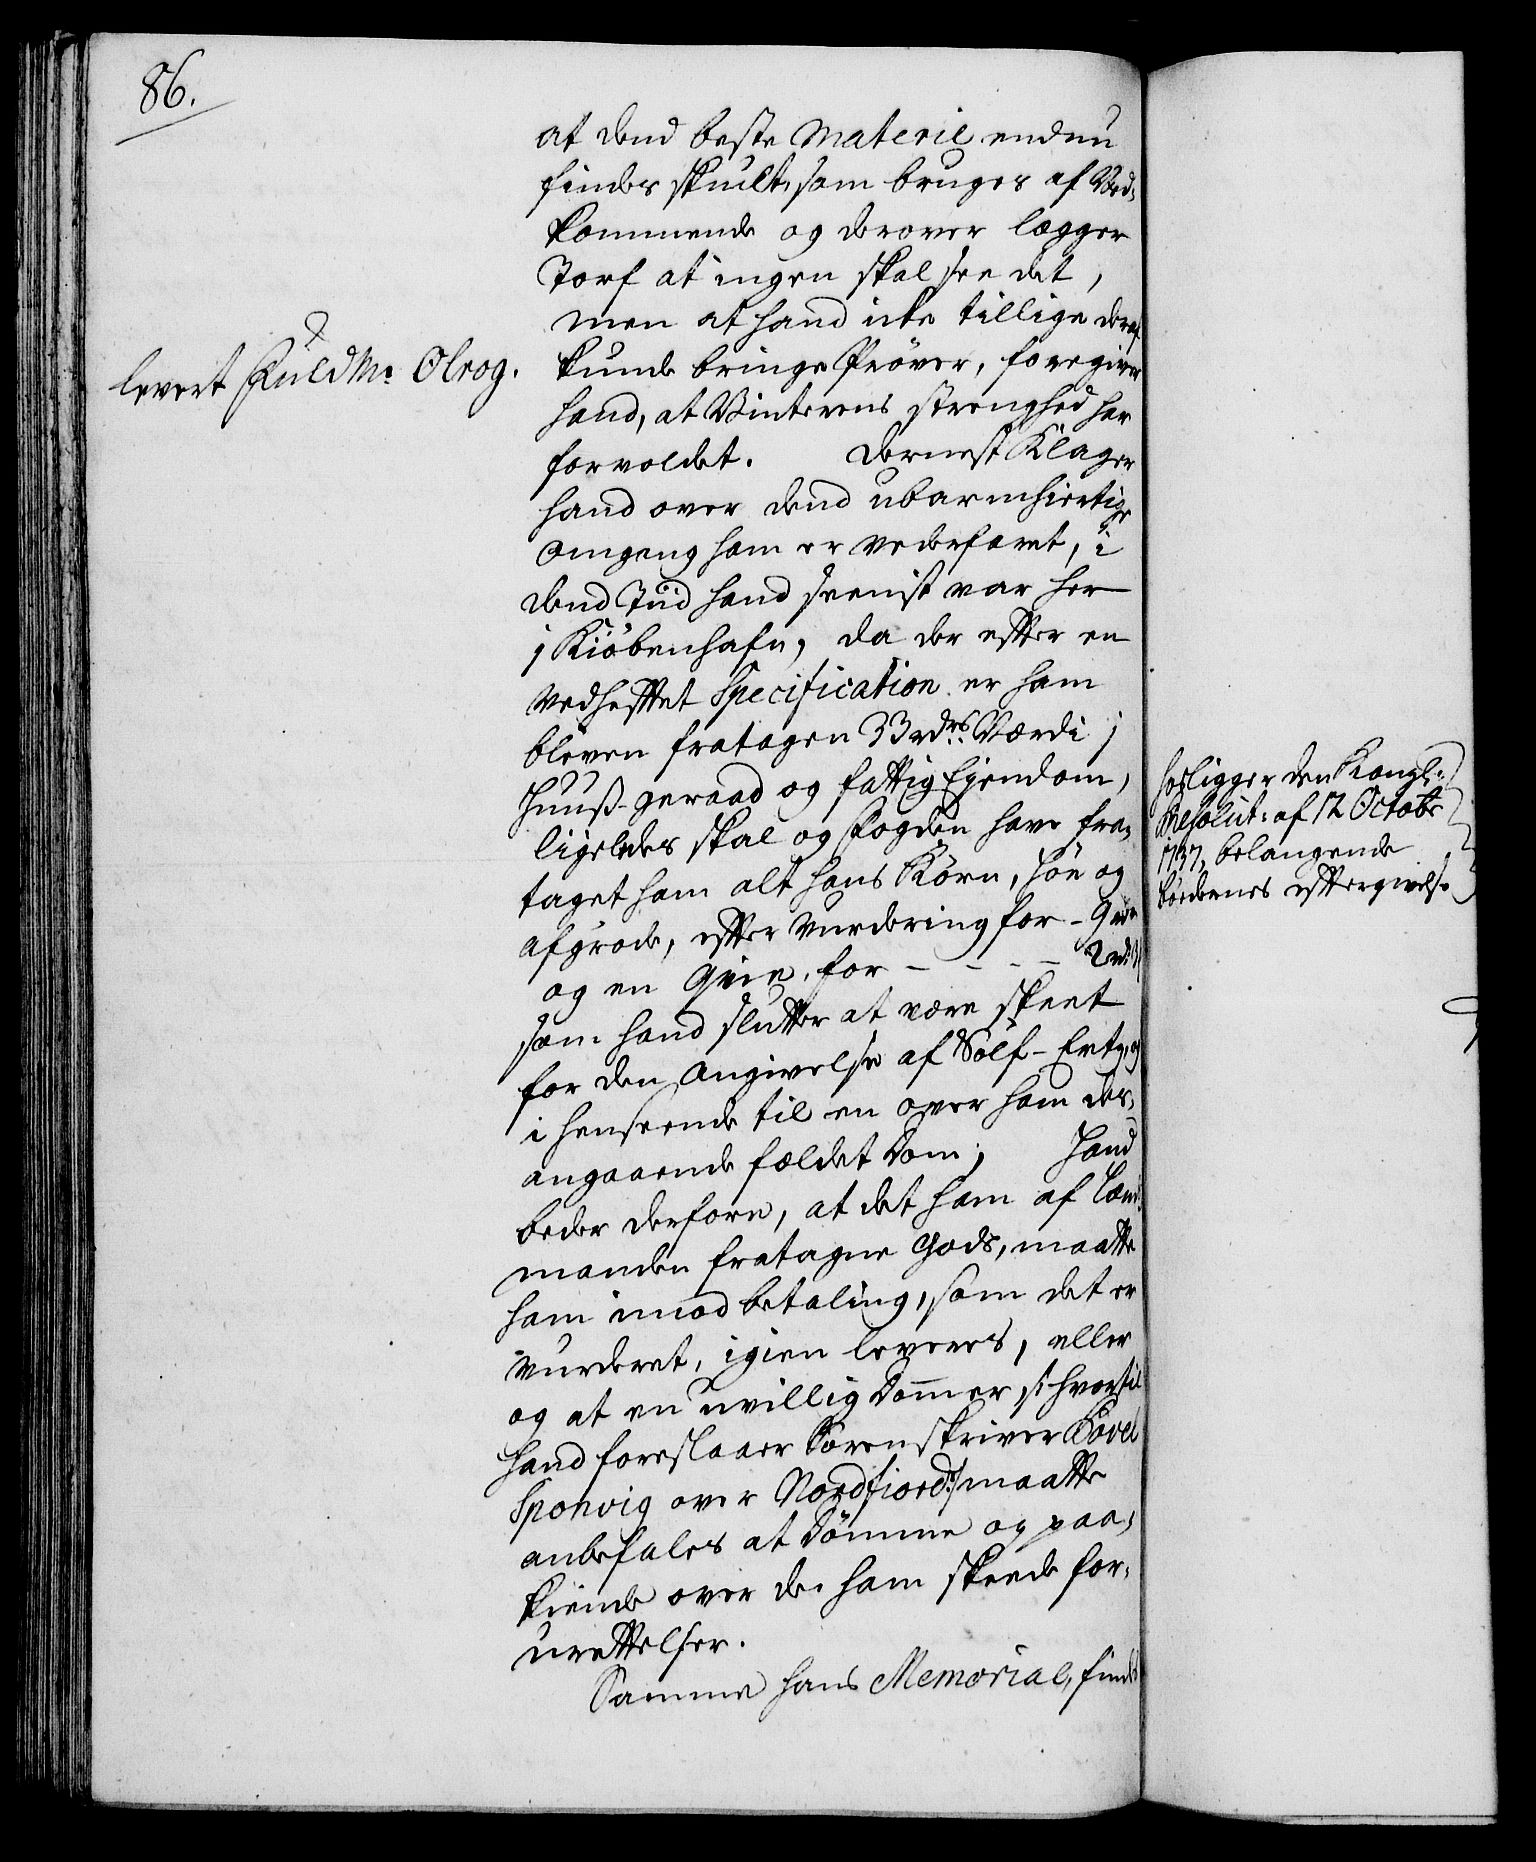 86.
at dend beste Materie endnu
findes skiult, som bruges af Ved-
kommende og derover lægger
Torf at ingen skal see det,
men at hand icke tillige deraf
levert Fuldm: Olrog.
kunde bringe Prøver, foregiver
hand, at Vinterens strenghed har
forvoldet. Dernest Klager
hand over dend ubarmhiertige
omgang ham er vederfaret, i
dend Tiid hand seenist var her
i Kiöbenhafn, da der efter en
vedheftet Specification er ham
bleven fratagen 33 rdrs Værdi i
Huuß-geraad og fattig Ejendom,
ligeledes skal og Fogden have fra-
taget ham alt hans Korn, Höe og
afgröde, efter vurdering for - 9 rdr
og en Qvie for - - - - 2 rdr
som hand slutter at være skeet
for den Angivelse af Sölf-Ertz, og
i henseende til en over ham der-
angaaende fældet Dom; Hand
beder derfore, at det ham af Læns-
manden fratagne Gods, maatte
ham imod betaling, som det er
vurderet, igien leveres, eller
og at en uvillig Dommer /: hvortil
hand foreslaaer Sorenskriver Povel
Sponvig over Nordfiord :/ maatte
anbefales at Dömme og paa-
kiende over de ham skeede for-
urettelser.
Samme hans Memorial, findes
hosligger den Kongl:
Resolut: af 12 Octobr
1737, belangende
bødernes eftergivelse